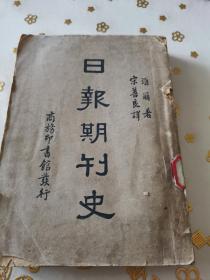 日報期刊史
宗善良譯
商務印書館發行